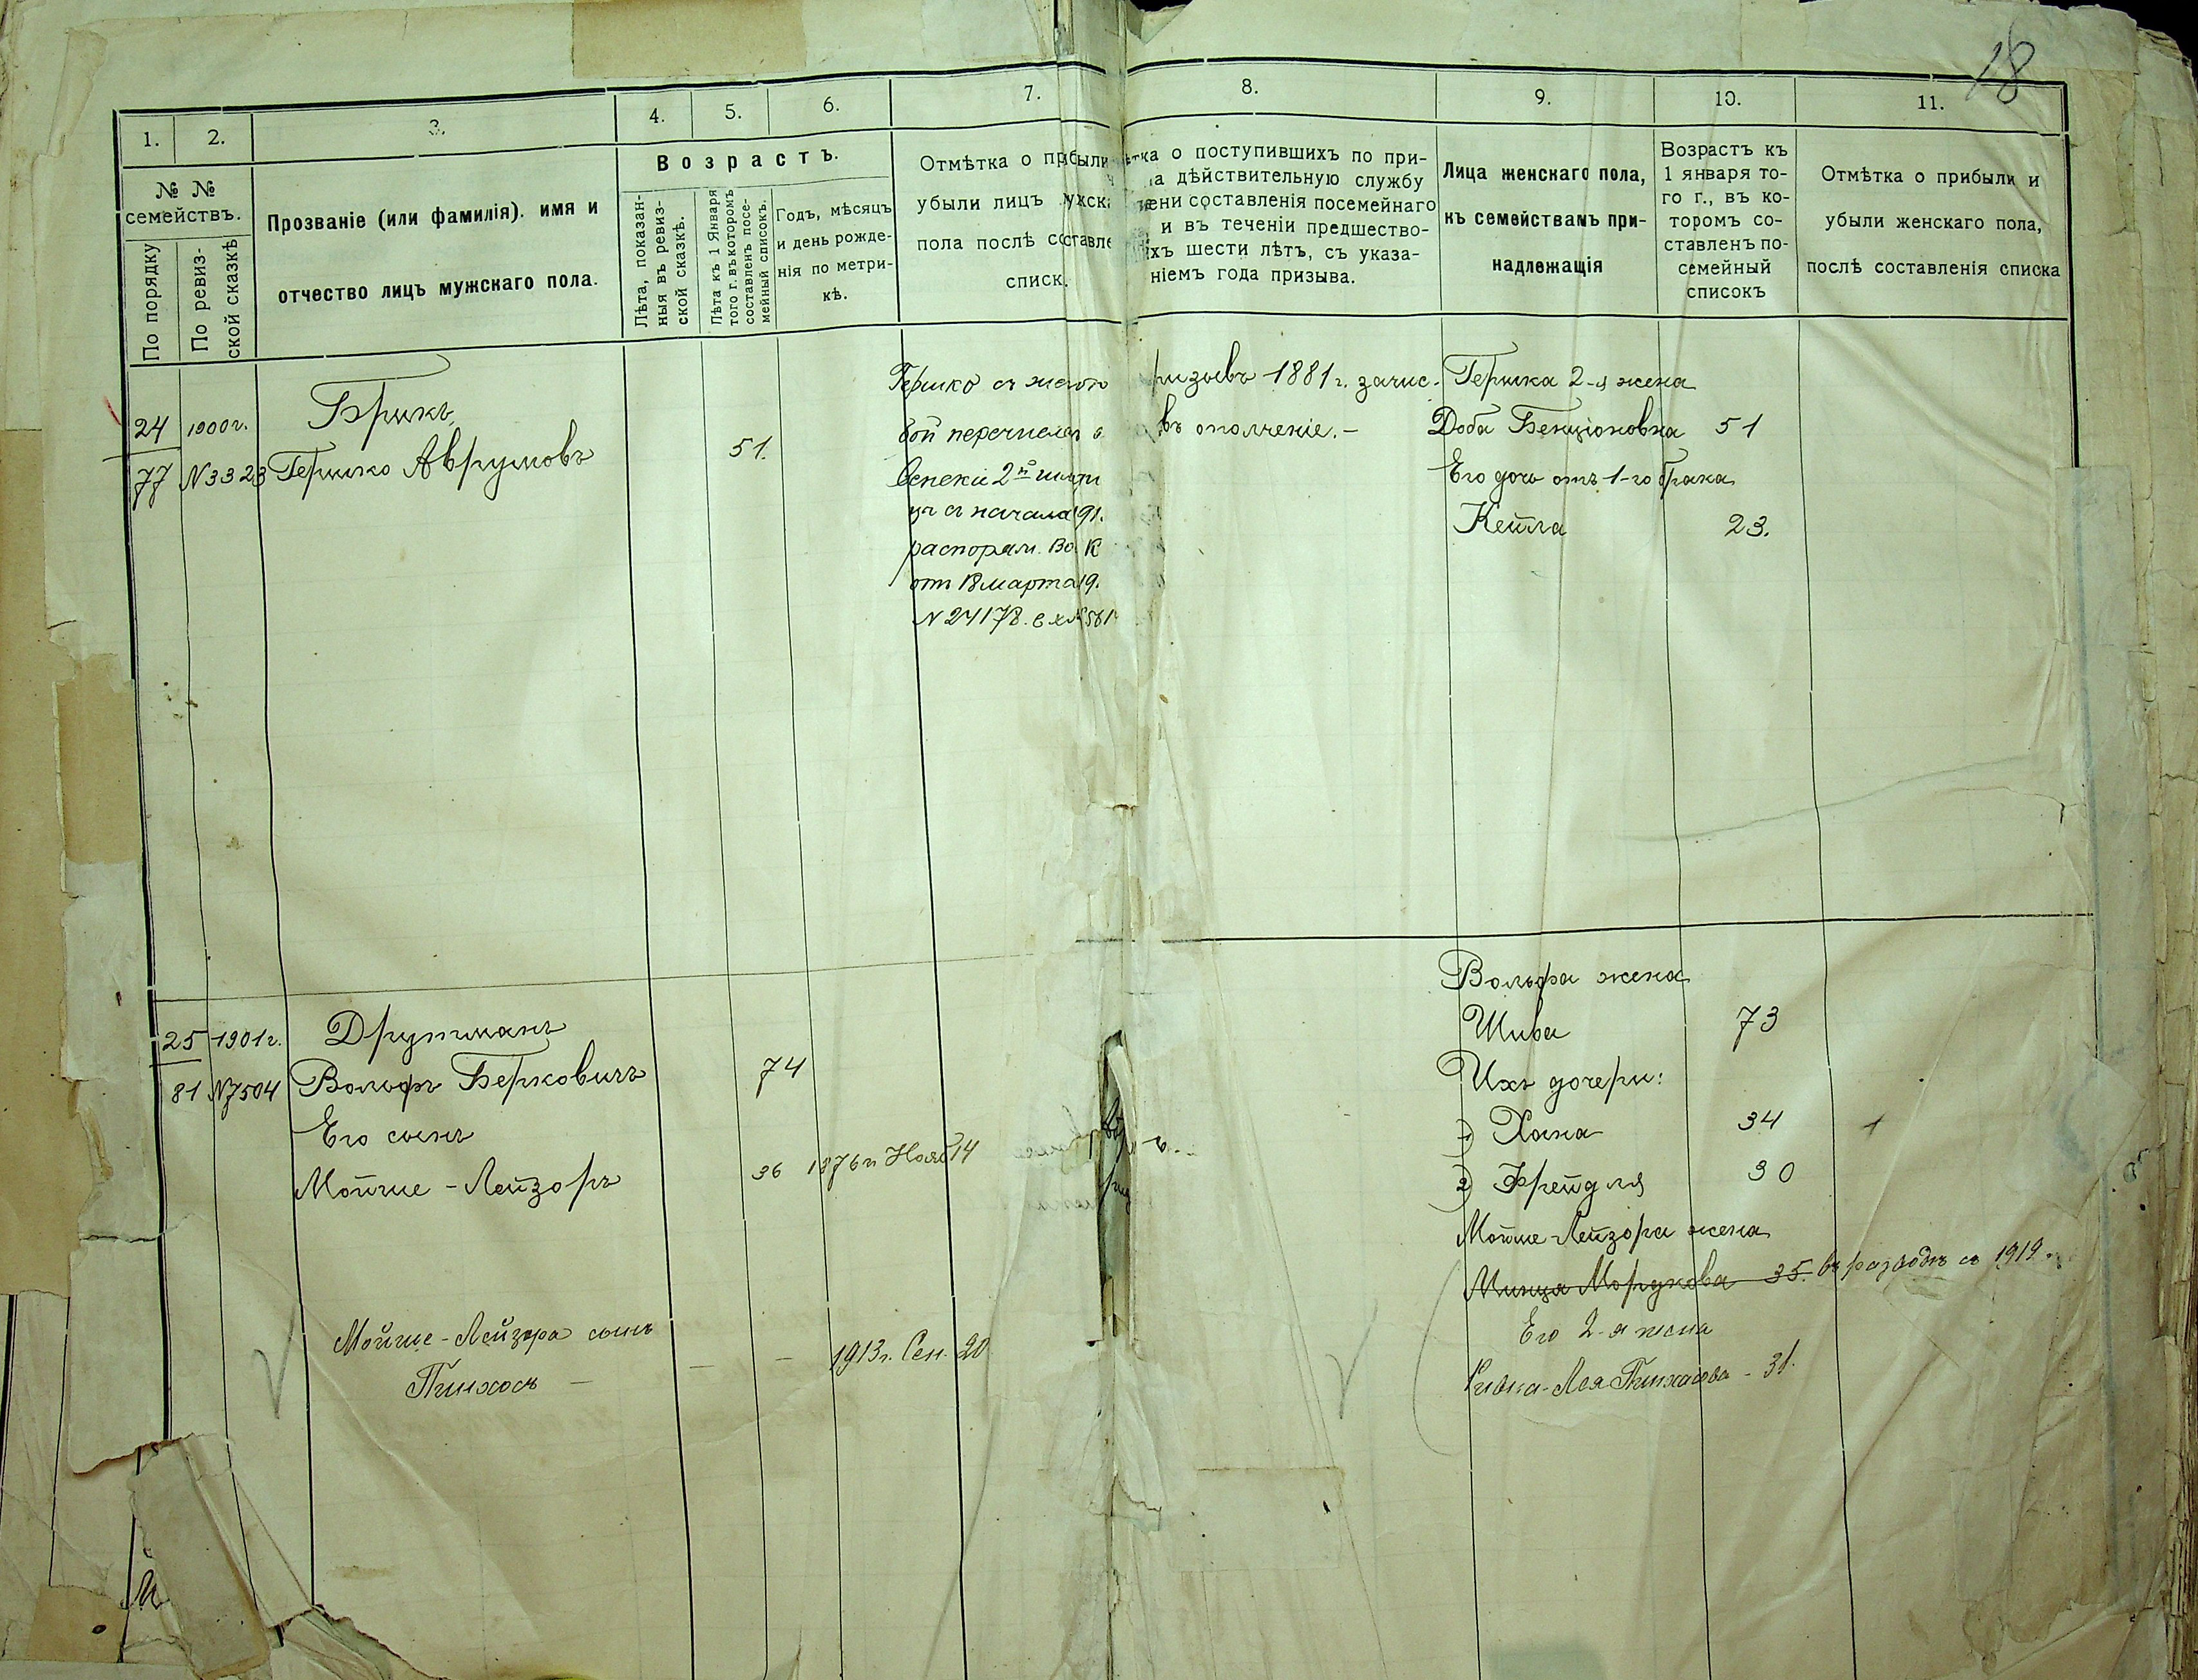 18
1. 2. 3. 4. 5. 6. 7. 8. 9. 10. 11.
№ № семействъ.
По порядку
По ревизской сказкѣ
Прозваніе (или фамилія). имя и
отчество лицъ мужскаго пола.
Возрастъ.
Лѣта, показан-
ныя въ ревиз-
ской сказкѣ.
Лѣта къ 1 Января
того г. въ которомъ
составленъ посе-
мейный списокъ.
Годъ, мѣсяцъ
и день рожде-
нія по метри-
кѣ.
Отмѣтка о прибыли
убыли лицъ мужск
пола послѣ составле
списк.
ѣтка о поступившихъ по при-
на дѣйствительную службу
мени составленія посемейнаго
и въ теченіи предшество-
ихъ шести лѣтъ, съ указа-
ніемъ года призыва.
Лица женскаго пола,
къ семействамъ при-
надлежащія
Возрастъ къ
1 января то-
го г., въ ко-
торомъ со-
ставленъ по-
семейный
списокъ
Отмѣтка о прибыли и
убыли женскаго пола,
послѣ составленія списка
24 1900 г. Брикъ
77 N 3323 Гершко Аврумовъ 51.
Гершко съ
бой перечислен
2й
съ начала 191.
распоряж.
отъ 18 марта 19.
N 24178.
ризывъ 1881 г. зачис.
въ ополченіе. -
Гершка 2-я жена
Доба Бенціоновна 51
Его дочь отъ 1-го брака
Кейла 23.
25 1901 г. Друтманъ
81 N 7504 Вольфъ Берковичъ 74
Его сынъ
Мойше-Лейзоръ 36 1876 г. Нояб 14
Мойше-Лейзора сынъ
Пинхосъ - - - 1913 г. Сен. 20
Вольфа жена
Шива 73
Ихъ дочери:
1) Хана 34
2) Фрейдля 30
Мойше-Лейзора жена
Минця Мордкова 35. въ разводѣ съ 1912 г.
Его 2-я жена
Ривка-Лея Пинхасова - 31.